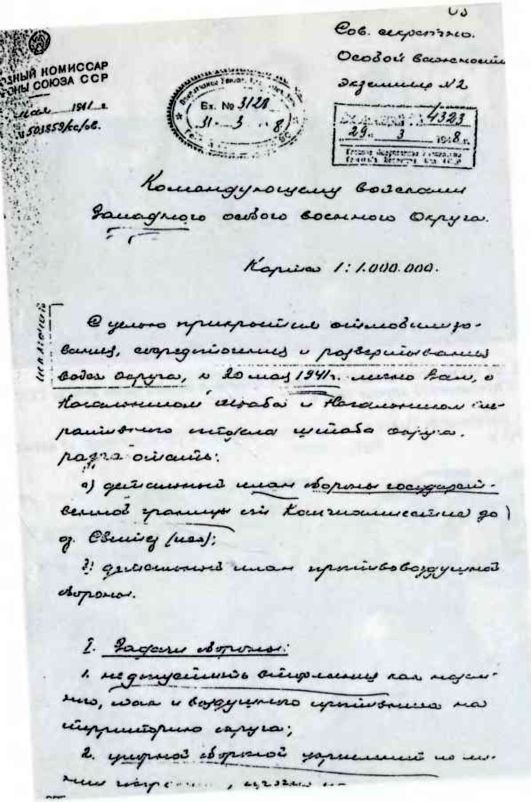 Сов. секретно.
Особой важности
Экземпляр №2
НЫЙ КОМИССАР
ОНЫ СОЮЗА ССР
мая 1941 г.
№503859/сс/ов.
Вх. № 3128
31 3 8
4323
29 3 1948 г.
Командующему войсками
Западного особого военного округа.
Карта 1:1.000.000.
С целью прикрытия отмобилизо-
вания, сосредоточения и развертывания
войск округа, к 20 мая 1941 г. лично Вам, с
Начальником штаба и Начальником опе-
ративного отдела штаба округа.
разработать:
а) детальный план обороны государст-
венной границы от Капчиамиестис до
Свитез (иск);
б) детальный план противовоздушной
обороны.
I. Задачи обороны:
1. не допустить вторжения как назем-
ного, так и воздушного противника на
территорию округа;
2. упорной обороной укреплений по ли-
нии